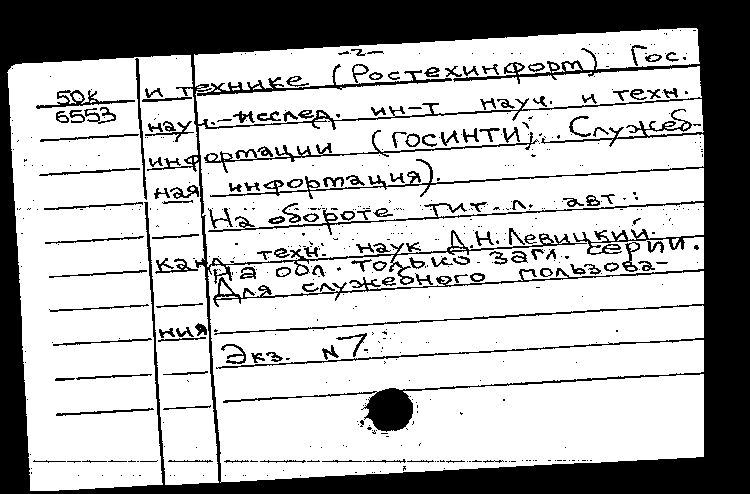 -2-
50к
6553
и технике (Ростехинформ) Гос.
науч.-исслед. ин-т науч. и техн.
информации (ГОСИНТИ). Служеб-
ная информация).
На обороте тит. л. авт.:
канд. техн. наук Д.Н. Левицкий.
На обл. только загл. серии.
Для служебного пользова-
ния.
Экз. N7